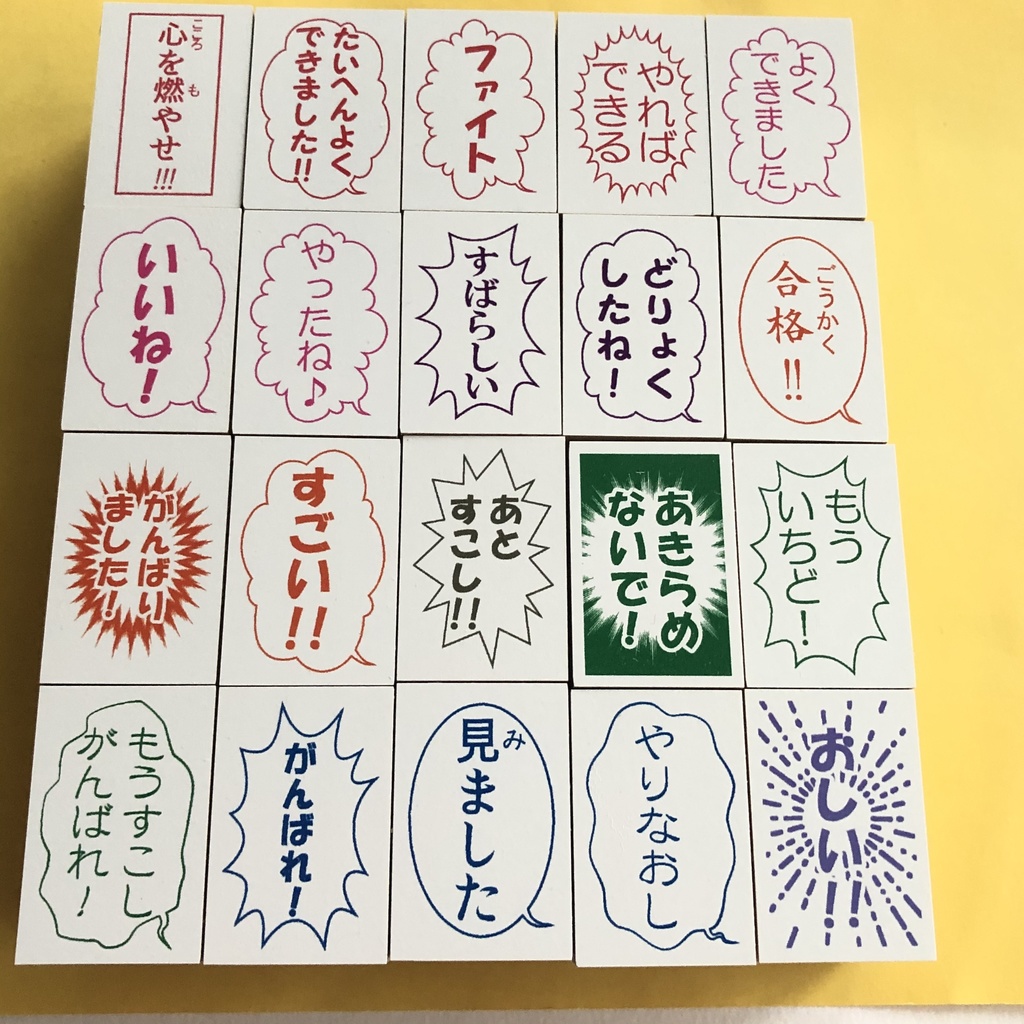 心を燃やせ!!!
こころ
も
たいへんよく
できました!!
ファイト
やれば
できる
よく
できました
いいね!
やったね♪
すばらしい
どりょく
したね!
合格!!
ごうかく
がんばり
ました!
すごい!!
あと
すこし!!
あきらめ
ないで!
もう
いちど!
もうすこし
がんばれ!
がんばれ!
見ました
み
やりなおし
おしい!!